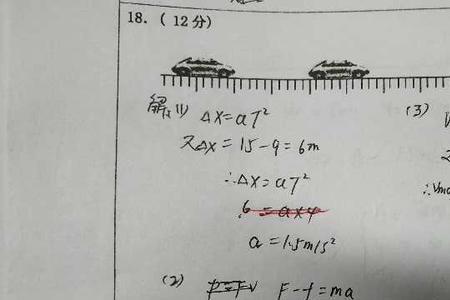 18.（12分）
解：(1) ΔX=aT²
又ΔX=15-9=6m
∴ΔX=aT²
6=a×4
a=1.5m/s²
(2) F-f=ma
(3)
∴Vm